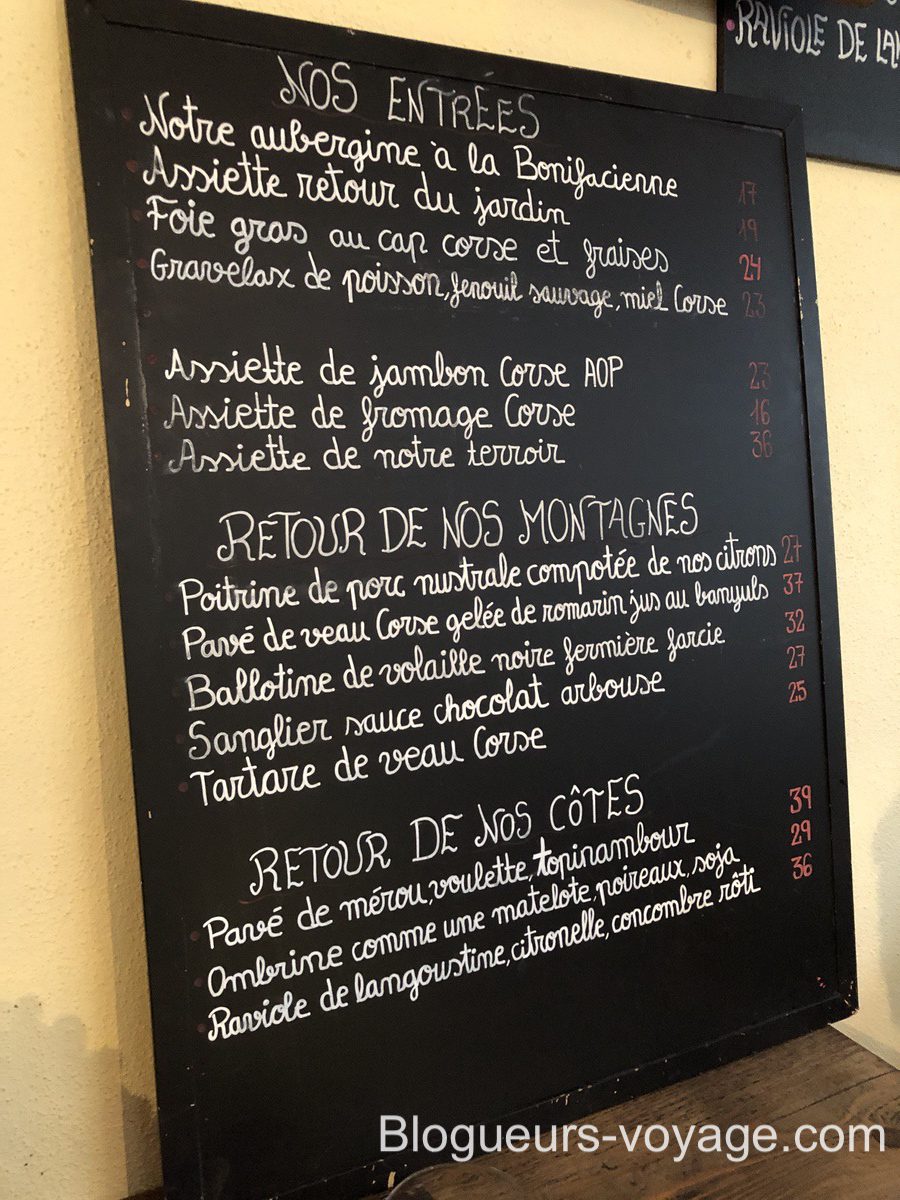 RAVIOLE DE LAN
NOS ENTRÉES
Notre aubergine à la Bonifacienne 17
Assiette retour du jardin 19
Foie gras au cap corse et fraises 24
Gravelax de poisson, fenouil sauvage, miel Corse 23
Assiette de jambon Corse AOP 23
Assiette de fromage Corse 16
Assiette de notre terroir 36
RETOUR DE NOS MONTAGNES
Poitrine de porc nustrale compotée de nos citrons 27
Pavé de veau Corse gelée de romarin jus au banyuls 37
Ballotine de volaille noire fermière farcie 32
Sanglier sauce chocolat arbouse 27
Tartare de veau Corse 25
RETOUR DE NOS CÔTES
Pavé de mérou, voulette, topinambour 39
Ombrine comme une matelote, poireaux, soja 29
Raviole de langoustine, citronelle, concombre rôti 36
Blogueurs-voyage.com